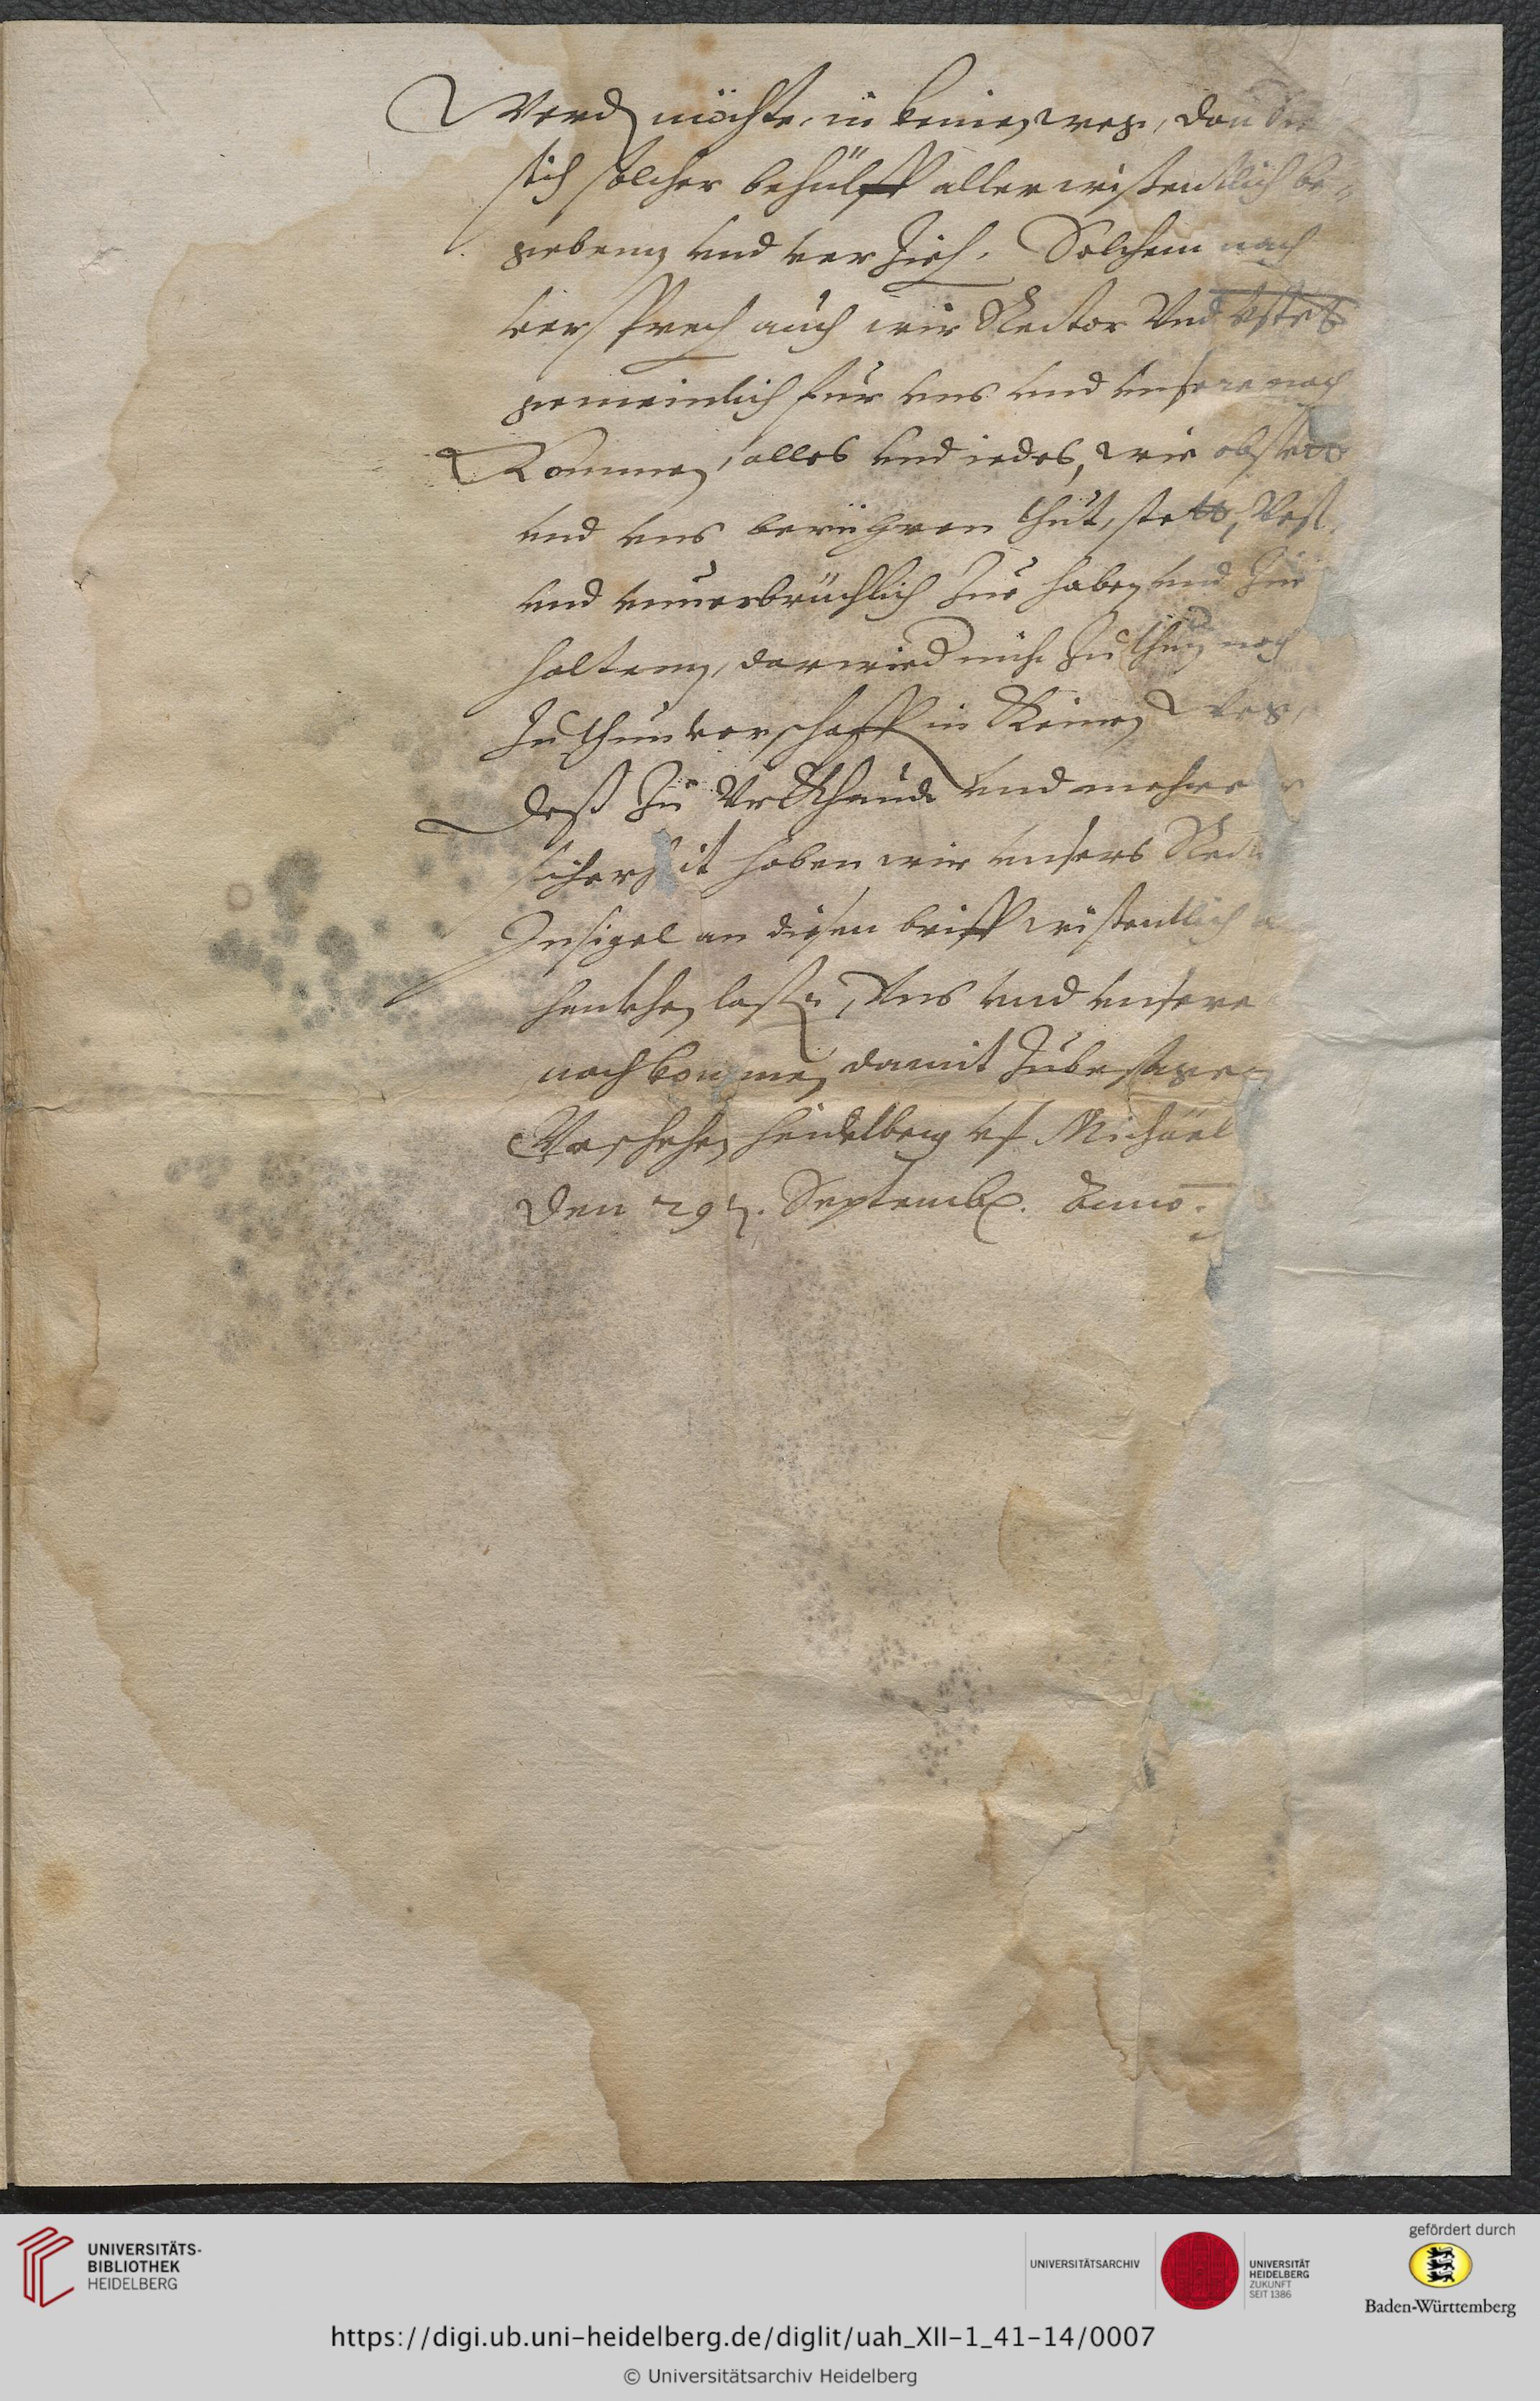 Werden möchte, in keinen weg, dan Sie
sich solcher behülff aller wissentlich be-
geben und verzieh. Solchem nach
versprech auch wir Rector Und
gemeinlich für uns und unsere nach
Kommen, alles und iedes, wie obsteet
und uns berühren thut, stett, Vest
und unuerbrüchlich zue haben und zue
halten, darwied nicht zu thun noch
zuthun verschaffen in Keinen Weg,
Deß zu UrKhundt und mehrer
sicherheit haben wir unsers Rect
Insigel an diesen brieff wissentlich
henkhen lassen, Uns und unsere
nachkommen damit zubesagen
Geschehen Heidelberg uf Michael
Den 29n. Septemb. Anno.
UNIVERSITÄTS-
BIBLIOTHEK
HEIDELBERG
UNIVERSITÄTSARCHIV
UNIVERSITÄT
HEIDELBERG
ZUKUNFT
SEIT 1386
gefördert durch
Baden-Württemberg
https://digi.ub.uni-heidelberg.de/diglit/uah_XII-1_41-14/0007
© Universitätsarchiv Heidelberg